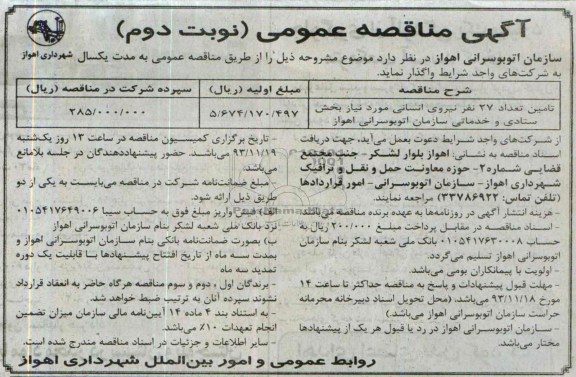 آگهی مناقصه عمومی (نوبت دوم)
شهرداری اهواز
سازمان اتوبوسرانی اهواز در نظر دارد موضوع مشروحه ذیل را از طریق مناقصه عمومی به مدت یکسال
به شرکت‌های واجد شرایط واگذار نماید.
شرح مناقصه
مبلغ اولیه (ریال)
سپرده شرکت در مناقصه (ریال)
تامین تعداد ۲۷ نفر نیروی انسانی مورد نیاز بخش
ستادی و خدماتی سازمان اتوبوسرانی اهواز
۵/۶۷۴/۱۷۰/۴۹۷
۲۸۵/۰۰۰/۰۰۰
از شرکت‌های واجد شرایط دعوت بعمل می‌آید، جهت دریافت
اسناد مناقصه به نشانی: اهواز بلوار لشکر - جنب مجتمع
قضایی شماره۲- حوزه معاونت حمل و نقل و ترافیک
شهرداری اهواز - سازمان اتوبوسرانی- امور قراردادها
(تلفن تماس: ۳۳۷۸۶۹۲۲) مراجعه نمایند.
- هزینه انتشار آگهی در روزنامه‌ها به عهده برنده مناقصه می‌باشد.
- اسناد مناقصه در مقابل پرداخت مبلغ ۲۰۰/۰۰۰ ریال به
حساب ۰۱۰۵۴۱۷۶۳۰۰۰۸ بانک ملی شعبه لشکر بنام سازمان
اتوبوسرانی اهواز تسلیم می‌گردد.
- اولویت با پیمانکاران بومی می‌باشد.
- مهلت قبول پیشنهادات و پاسخ به مناقصه حداکثر تا ساعت ۱۴
مورخ ۹۳/۱۱/۱۸ می‌باشد، (محل تحویل اسناد دبیرخانه محرمانه
حراست سازمان اتوبوسرانی اهواز می‌باشد.)
- سازمان اتوبوسرانی اهواز در رد یا قبول هر یک از پیشنهادها
مختار می‌باشد.
- تاریخ برگزاری کمیسیون مناقصه در ساعت ۱۳ روز یک‌شنبه
۹۳/۱۱/۱۹ می‌باشد. حضور پیشنهاددهندگان در جلسه بلامانع
می‌باشد.
- مبلغ ضمانت‌نامه شرکت در مناقصه می‌بایست به یکی از دو
طریق ذیل ارائه شود.
الف) فیش واریز مبلغ فوق به حساب سیبا ۰۱۰۵۴۱۷۶۴۹۰۰۶
نزد بانک ملی شعبه لشکر بنام سازمان اتوبوسرانی اهواز
ب) بصورت ضمانت‌نامه بانکی بنام سازمان اتوبوسرانی اهواز و
بمدت سه ماه از تاریخ افتتاح پیشنهادها با قابلیت یک دوره
تمدید سه ماه
- برندگان اول ، دوم و سوم مناقصه هرگاه حاضر به انعقاد قرارداد
نشوند سپرده آنان به ترتیب ضبط خواهد شد.
- به استناد بند ۴ ماده ۱۴ آیین‌نامه مالی سازمان میزان تضمین
انجام تعهدات ۱۰٪ می‌باشد.
- سایر اطلاعات و جزئیات در اسناد مناقصه مندرج شده است.
روابط عمومی و امور بین‌الملل شهرداری اهواز